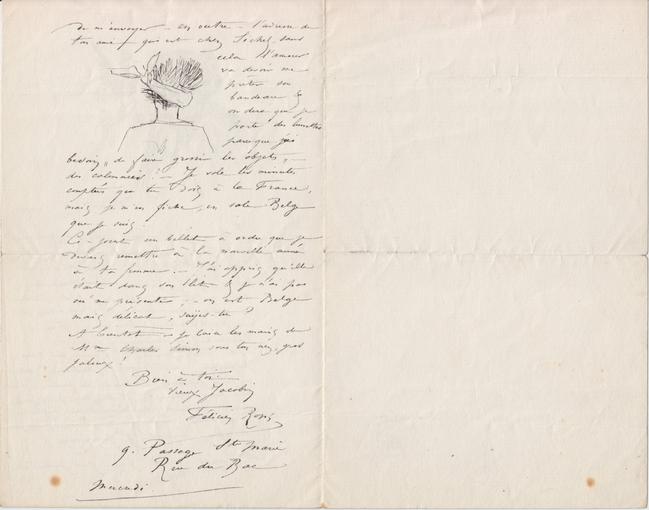 de m'envoyer – en outre – l'adresse de
ton ami qui est chez sans
cela l'amour
va devoir me
prêter son
bandeau &
on dira que je
porte des lunettes
parce que j'ai
besoin de faire grossir les objets, –
des calomnies! – Je vole les minutes
comptées que tu dois à la France,
mais je m'en fiche, en sale Belge
que je suis.
Ci-joint un billet à ordre que je
devais remettre à la nouvelle année
à ta femme. – J'ai appris qu'elle
était dans son lit & je n'ai pas
osé me présenter; – on est Belge
mais délicat, sais-tu?
A bientôt – je baise les mains de
Mme Charles Simon sous ton nez, gros
jaloux!
Bien à toi
vieux Jacobin
Félicien Rops
9. Passage Ste Marie
Rue du Bac
Mercredi